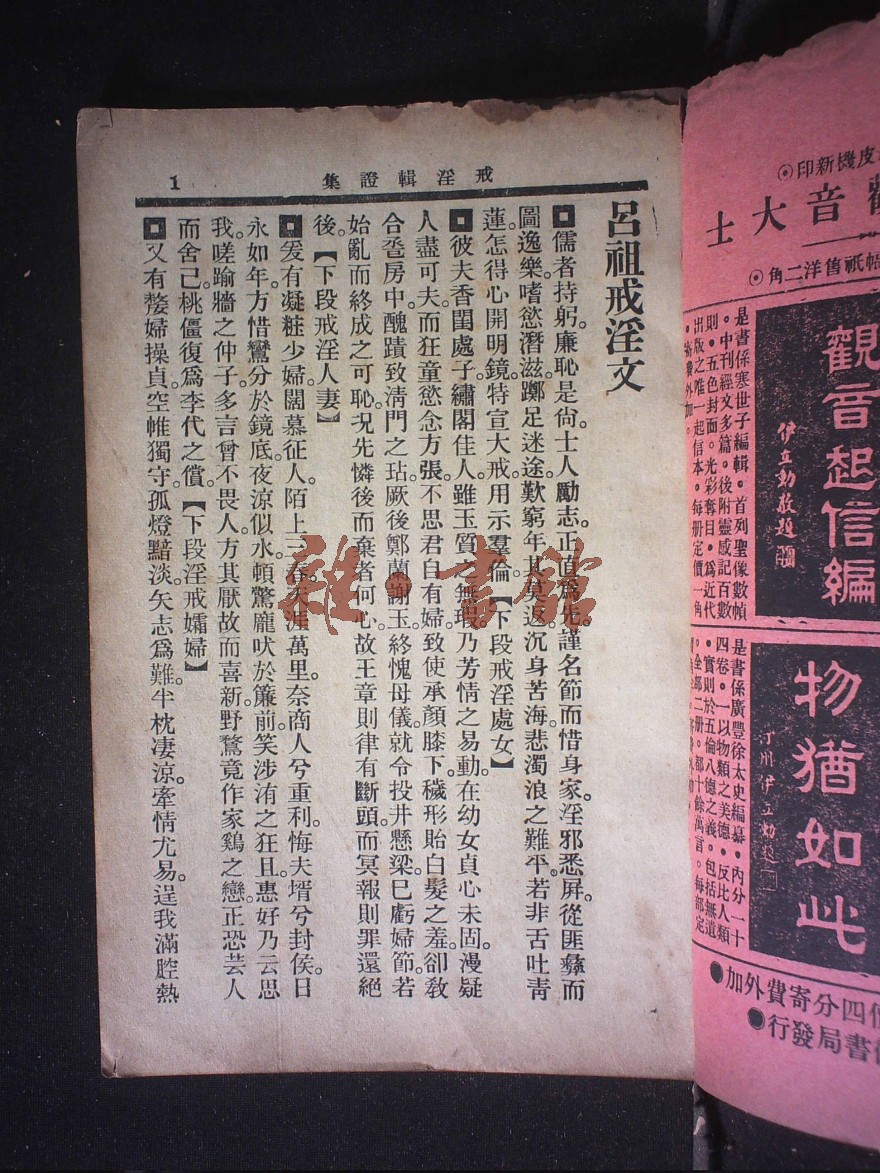 戒淫輯證集
1
呂祖戒淫文
儒者持躬。廉恥是尙。士人勵志。正值爲先。謹名節而惜身家。淫邪悉屏。從匪彝而
圖逸樂。嗜慾潛滋。躑足迷途。歎窮年其莫返。沉身苦海。悲濁浪之難平。若非舌吐靑
蓮。怎得心開明鏡。特宣大戒。用示羣倫。【下段戒淫處女】
彼夫香閨處子。繡閣佳人。雖玉質之無瑕。乃芳情之易動。在幼女貞心未固。漫疑
人盡可夫。而狂童慾念方張。不思君自有婦。致使承顏膝下。穢形貽白髮之羞。卻敎
合巹房中。醜蹟致淸門之玷。厥後鄭蘭謝玉。終愧母儀。就令投井懸梁。已虧婦節。若
始亂而終成之可恥。况先憐後而棄者何心。故王章則律有斷頭。而冥報則罪還絕
後。【下段戒淫人妻】
爰有凝粧少婦。闊慕征人。陌上三春。天涯萬里。奈商人兮重利。悔夫壻兮封侯。日
永如年。方惜鸞分於鏡底。夜涼似水。頓驚龐吠於簾前。笑涉洧之狂且。惠好乃云思
我。嗟踰牆之仲子。多言曾不畏人。方其厭故而喜新。野鶩竟作家鷄之戀。正恐芸人
而舍己。桃僵復爲李代之償。【下段淫戒孀婦】
又有嫠婦操貞。空帷獨守。孤燈黯淡。矢志爲難。半枕凄涼。牽情尤易。逞我滿腔熱
雅·書館
皮機新印⊙
觀音大士
幀祇售洋二角⊙
觀音起信編
伊立勳敬題
是書係寒世子編輯。首列聖像數幀
。中刊經文多篇。後附靈感記百數
則。五色封面。光彩奪目。爲近代
出版之唯一起信本。每册定價一角
。寄費外加。
物猶如此
汀州伊立勳題
是書係廣豐徐太史編纂。內分一十
四卷。一以物類之美德。反比人類
。實則於五倫八德之義。包括無遺
。全部二册。都十餘萬言。每部定
四分寄費外加●
書局發行●